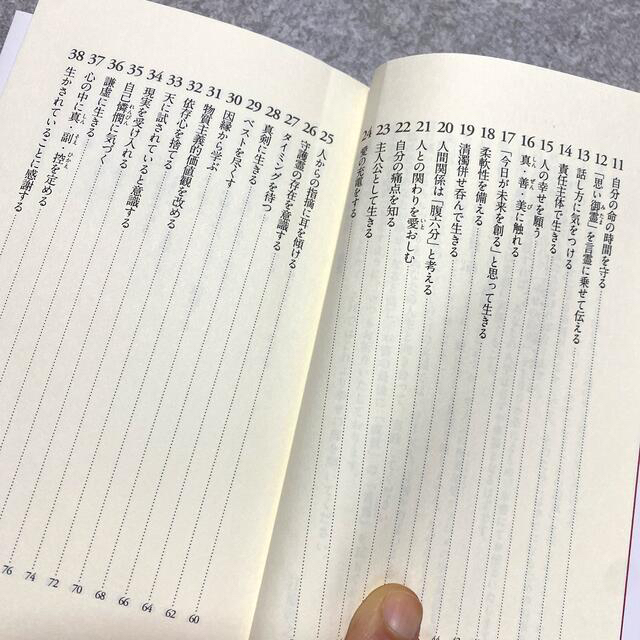 11 自分の命の時間を守る
12 「思い御霊」を言霊に乗せて伝える
13 話し方に気をつける
14 責任主体で生きる
15 人の幸せを願う
16 真・善・美に触れる
17 「今日が未来を創る」と思って生きる
18 柔軟性を備える
19 清濁併せ呑んで生きる
20 人間関係は「腹六分」と考える
21 人との関わりを愛おしむ
22 自分の痛点を知る
23 主人公として生きる
24 愛の充電をする
25 人からの指摘に耳を傾ける
26 守護霊の存在を意識する
27 タイミングを待つ
28 真剣に生きる
29 ベストを尽くす
30 因縁から学ぶ 60
31 物質主義的価値観を改める 62
32 依存心を捨てる 64
33 天に試されていると意識する 66
34 現実を受け入れる 68
35 自己憐憫に気づく 70
36 謙虚に生きる 72
37 心の中に真・副・控を定める 74
38 生かされていることに感謝する 76